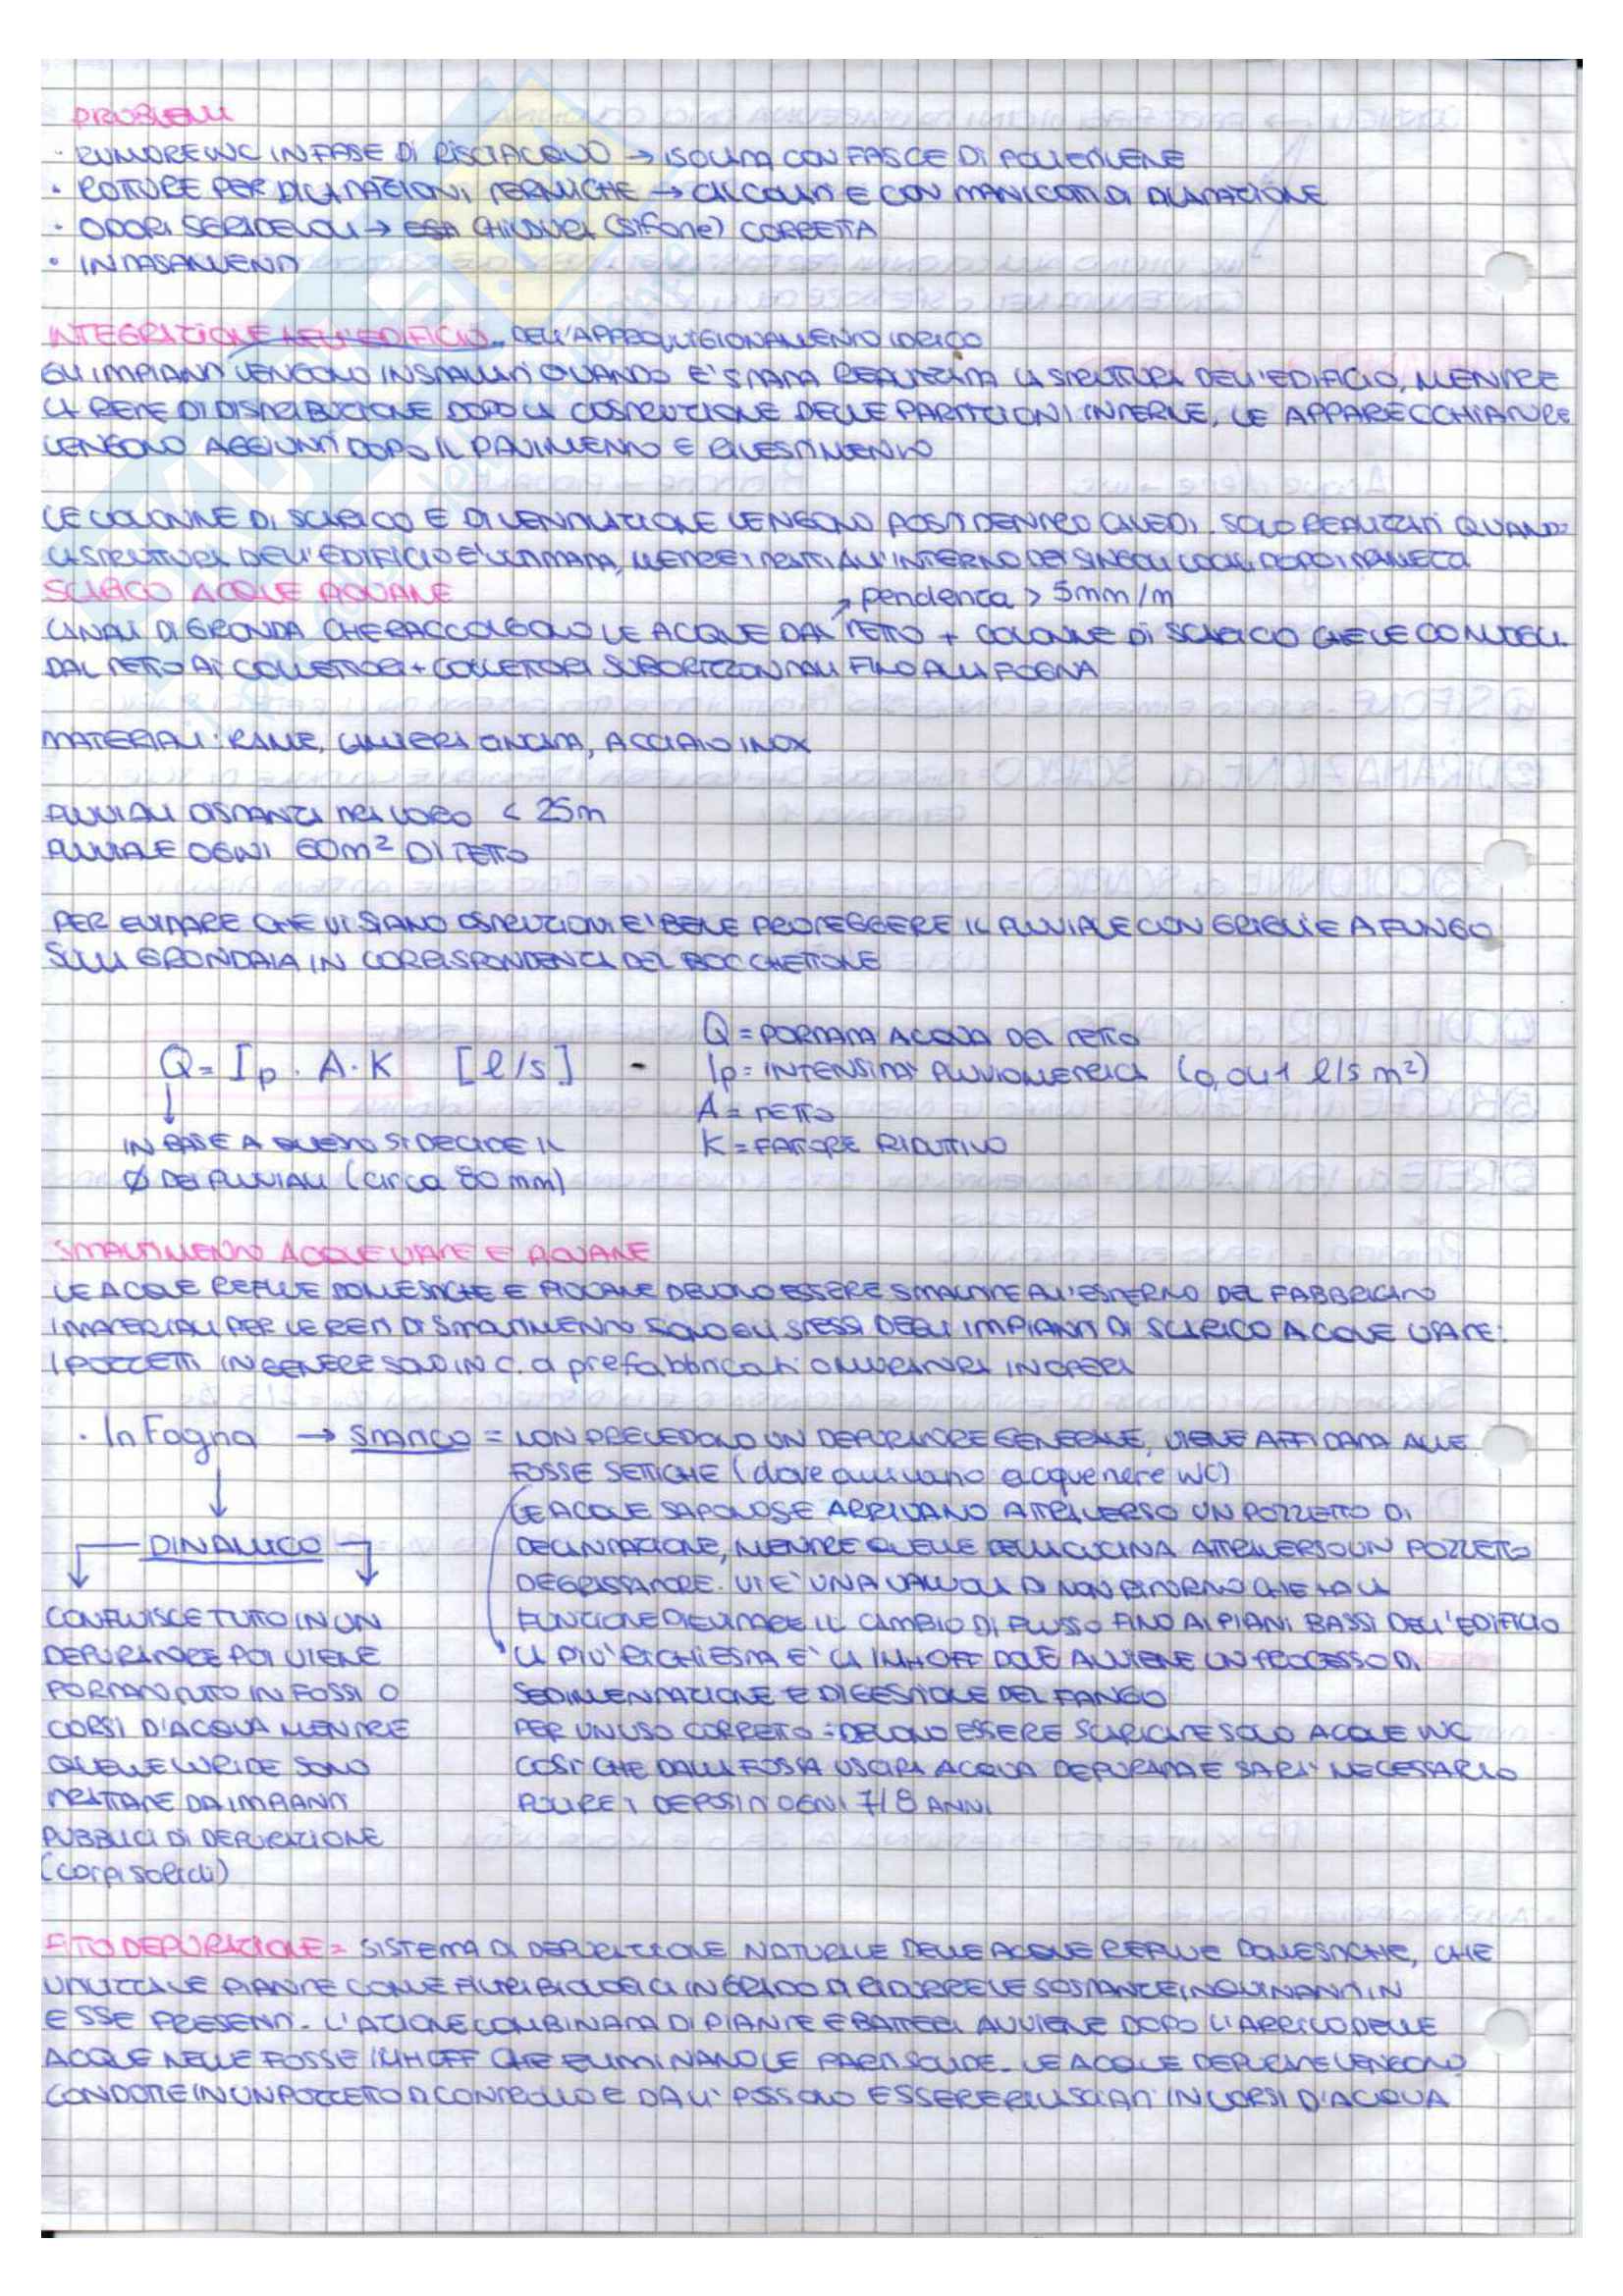 PROBLEMI
· RUMORE WC IN FASE DI RISCIACQUO → ISOLATA CON FASCE DI POLIETILENE
· ROTTURE PER DILATAZIONI TERMICHE → CALCOLATI E CON MANICOTTI DI DILATAZIONE
· ODORI SGRADEVOLI → CHIUSURA (SIFONE) CORRETTA
· INTASAMENTI
INTEGRAZIONE NELL'EDIFICIO DELL'APPROVVIGIONAMENTO IDRICO
GLI IMPIANTI VENGONO INSTALLATI QUANDO E' STATA REALIZZATA LA STRUTTURA DELL'EDIFICIO, MENTRE
LA RETE DI DISTRIBUZIONE DOPO LA COSTRUZIONE DELLE PARTIZIONI INTERNE, LE APPARECCHIATURE
VENGONO AGGIUNTI DOPO IL PAVIMENTO E RIVESTIMENTO
LE COLONNE DI SCARICO E DI VENTILAZIONE VENGONO POSTI DENTRO CAVEDI. SOLO REALIZZATI QUANDO
LA STRUTTURA DELL'EDIFICIO E' ULTIMATA, MENTRE I TRATTI ALL'INTERNO DEI SINGOLI LOCALI DOPO I
SCARICO ACQUE PIOVANE
pendenza > 5mm/m
CANALI DI GRONDA CHE RACCOLGOLO LE ACQUE DAL TETTO + COLONNE DI SCARICIO CHE LE CONDUCE
DAL TETTO AI COLLETTORI + COLLETTORI SUBORIZZONTALI FINO ALLA FOGNA
MATERIALI: RAME, LAMIERA ZINCATA, ACCIAIO INOX
PLUVIALI DISTANZA TRA LORO < 25m
PLUVIALE OGNI 60m² DI TETTO
PER EVITARE CHE VI SIANO OSTRUZIONI E' BENE PROTEGGERE IL PLUVIALE CON GRIGLIE A FUNGO
SULLA GRONDAIA IN CORRISPONDENZA DEL BOCCHETTONE
Q = Ip · A · K [l/s] -
Q = PORTATA ACQUA DEL TETTO
Ip = INTENSITA' PLUVIOMETRICA (0,041 l/s m²)
A = TETTO
K = FATTORE RIDUTTIVO
IN BASE A QUESTO SI DECIDE IL
Ø DEI PLUVIALI (circa 80 mm)
SMALTIMENTO ACQUE USATE E PIOVANE
LE ACQUE REFLUE DOMESTICHE E PIOVANE DEVONO ESSERE SMALTITE ALL'ESTERNO DEL FABBRICATO
I MATERIALI PER LE RETI DI SMALTIMENTO SONO GLI STESSI DEGLI IMPIANTI DI SCARICO ACQUE USATE.
I POZZETTI IN GENERE SONO IN C.a prefabbricati O MURATURA IN OPERA
· In Fogna → STATICO = NON PREVEDONO UN DEPURATORE GENERALE, VIENE AFFIDATA ALLE
FOSSE SETTICHE (dove arrivano acque nere WC)
LE ACQUE SAPONOSE ARRIVANO ATTRAVERSO UN POZZETTO DI
DECANTAZIONE, MENTRE QUELLE DELLA CUCINA ATTRAVERSO UN POZZETTO
DEGRASSATORE. VI E' UNA VALVOLA DI NON RITORNO CHE HA LA
FUNZIONE DI EVITARE IL CAMBIO DI FLUSSO FINO AI PIANI BASSI DELL'EDIFICIO
LA PIU' RICHIESTA E' LA IMHOFF DOVE AVVIENE UN PROCESSO DI
SEDIMENTAZIONE E DIGESTIONE DEL FANGO
PER UN USO CORRETTO = DEVONO ESSERE SCARICATE SOLO ACQUE WC
COSI' CHE DALLA FOSSA USCIRA ACQUA DEPURATA E SARA' NECESSARIO
PULIRE I DEPOSITI OGNI 7/8 ANNI
DINAMICO
CONFLUISCE TUTTO IN UN
DEPURATORE POI VIENE
PORTATO TUTTO IN FOSSI O
CORSI D'ACQUA MENTRE
QUELLE LURIDE SONO
TRATTATE DA IMPIANTI
PUBBLICI DI DEPURAZIONE
(corpi solidi)
FITODEPURAZIONE = SISTEMA DI DEPURAZIONE NATURALE DELLE ACQUE REFLUE DOMESTICHE, CHE
UTILIZZA LE PIANTE COME FILTRI BIOLOGICI IN GRADO DI RIDURRE LE SOSTANZE INQUINANTI IN
ESSE PRESENTI. L'AZIONE COMBINATA DI PIANTE E BATTERI AVVIENE DOPO L'ARRIVO DELLE
ACQUE NELLE FOSSE IMHOFF CHE ELIMINANO LE PARTI SOLIDE. LE ACQUE DEPURATE VENGONO
CONDOTTE IN UN POZZETTO DI CONTROLLO E DA LI' POSSONO ESSERE RILASCIATI IN CORSI D'ACQUA